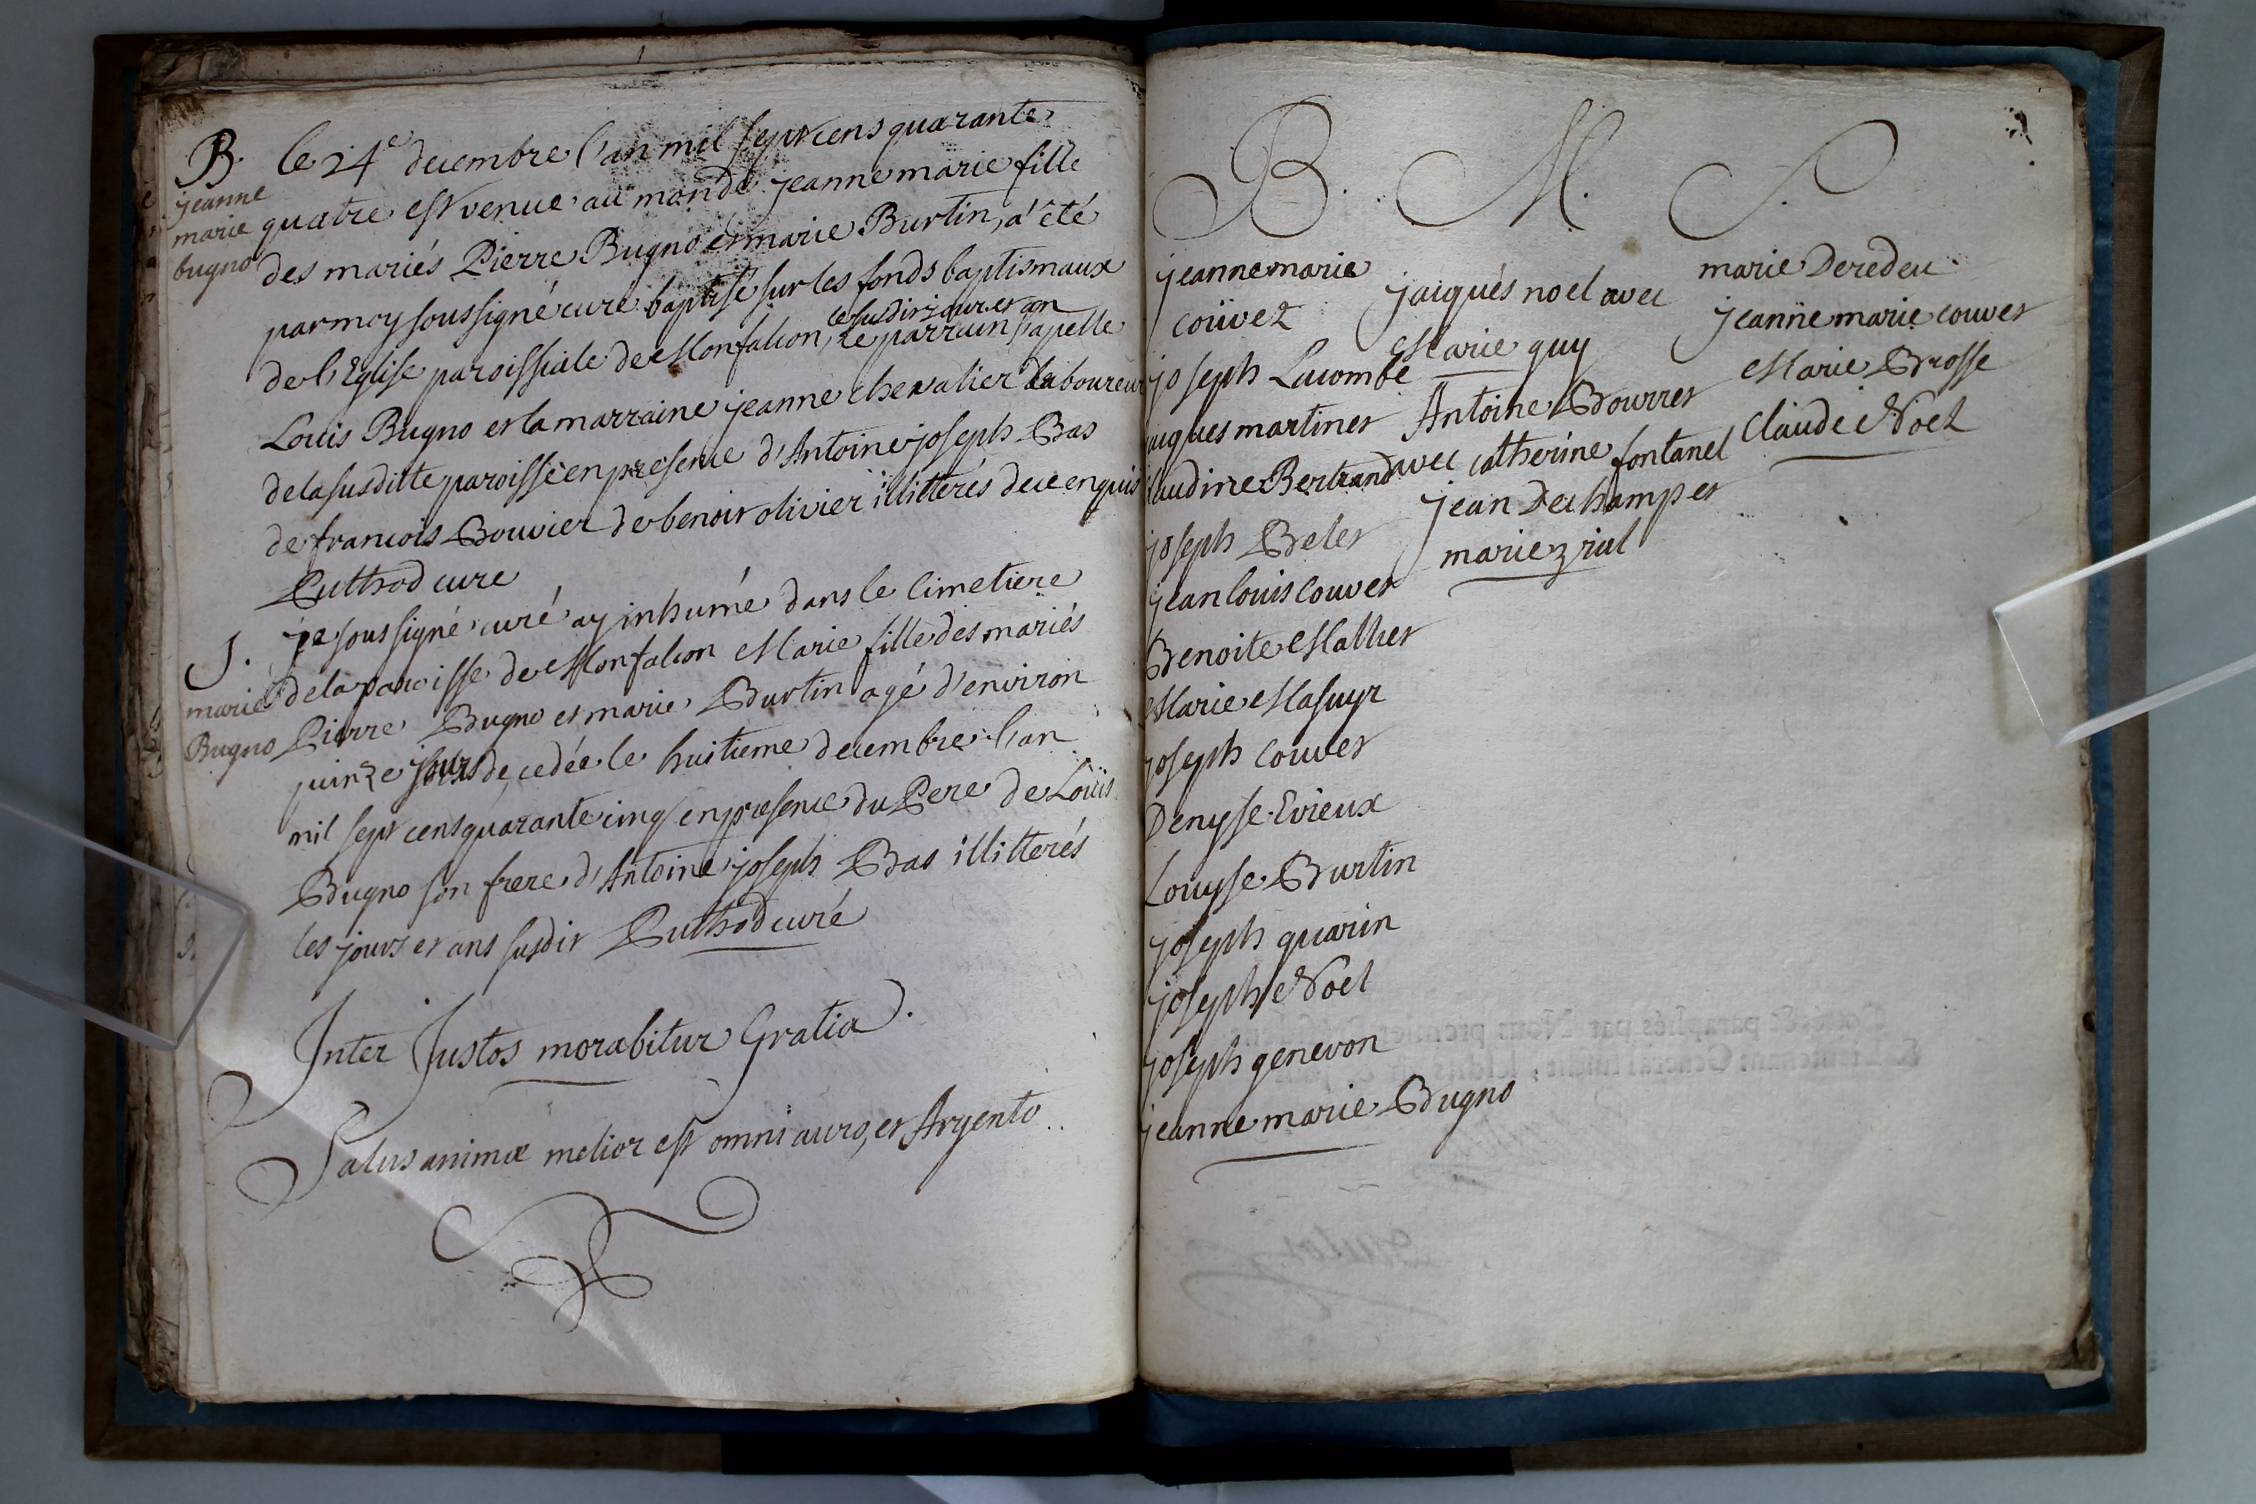 B. le 24e decembre l'an mil sept cens quarante
jeanne
marie quatre est venue au monde jeanne marie fille
bugno des mariés Pierre Bugno et marie Burtin, a êté
par moy soussigné curé baptisé sur les fonds baptismaux
le susdit jour et an
de l'Eglise paroissiale de Monfalcon, le parrain s'apelle
Louis Bugno et la marraine jeanne chevalier laboureur
de la susditte paroisse en presence d'Antoine joseph Bas
de francois Bouvier de benoit olivier illitterés de ce enquis
Puthod cure
S. je soussigné curé ay inhumé dans le Cimetiere
marie de la paroisse de Monfalcon Marie fille des mariés
Bugno Pierre Bugno et marie Burtin agé d'environ
quinze jours decedée le huitieme decembre l'an
mil sept cens quarante cinq en presence du Pere de Loüis
Bugno son frere d'Antoine joseph Bas illitterés
les jours et ans susdit Puthod curé
Inter Justos morabitur Gratia.
Salus animæ melior est omni auro, et Argento..
B. M. S.
jeanne marie
coüvez
joseph Lacombe
jaques martinet
claudine Bertrand
joseph Belet
jean louis couvet
Benoite Mallet
Marie Masuyr
joseph couvet
Denyse Evieux
Louyse Burtin
joseph guarin
joseph Noel
joseph genevon
jeanne marie Bugno
jaiqués noel avec
Marie guy
Antoine Bourret
avec catherine fontanel
jean Dechamp et
marie
marie Deredeu
jeanne marie couvet
Marie Brosse
Claude Noel